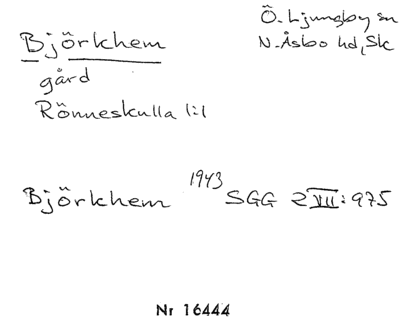 Björkhem
Ö. Ljungby sn
N. Åsbo hd, Sk
gård
Rönneskulla 1:1
Björkhem 1943 SGG 2 VII: 975
Nr 16444